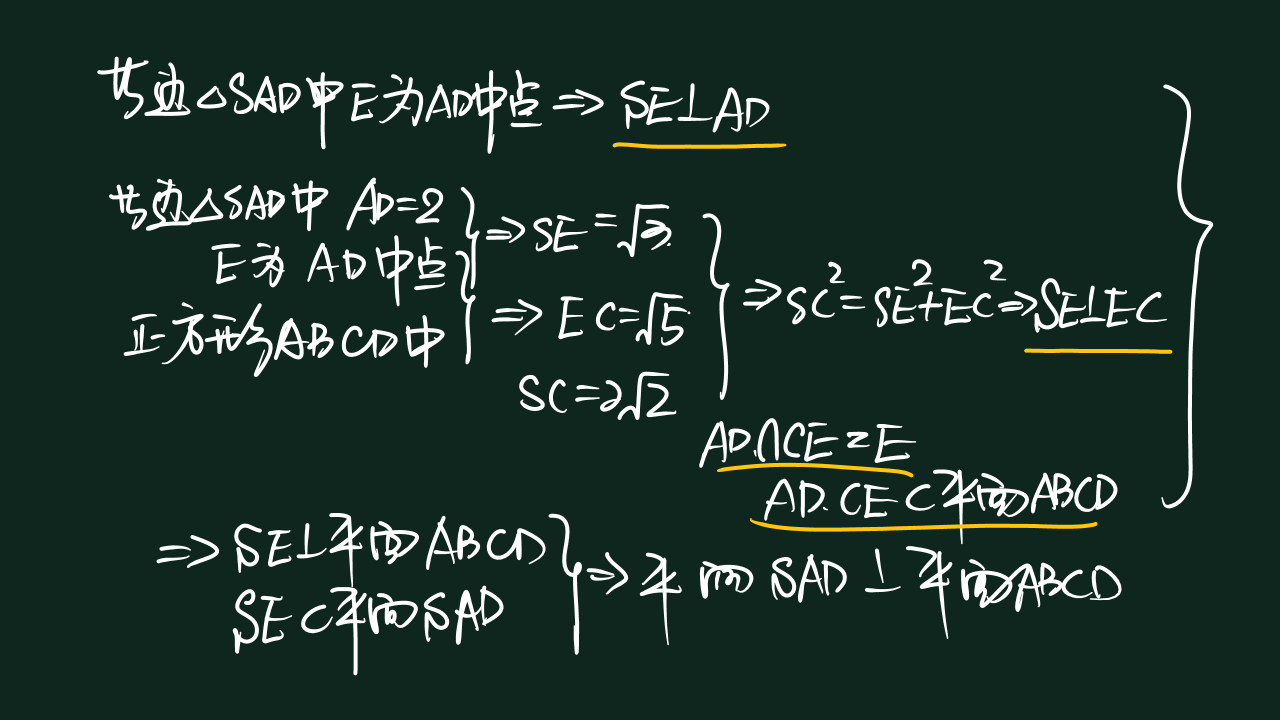 等边△SAD中E为AD中点⇒SE⊥AD
等边△SAD中 AD=2
E为AD中点
⇒SE=√3
正方形ABCD中
⇒EC=√5
SC=2√2
⇒SC²=SE²+EC²⇒SE⊥EC
AD∩CE=E
AD.CE⊂平面ABCD
⇒SE⊥平面ABCD
SE⊂平面SAD
⇒平面SAD⊥平面ABCD